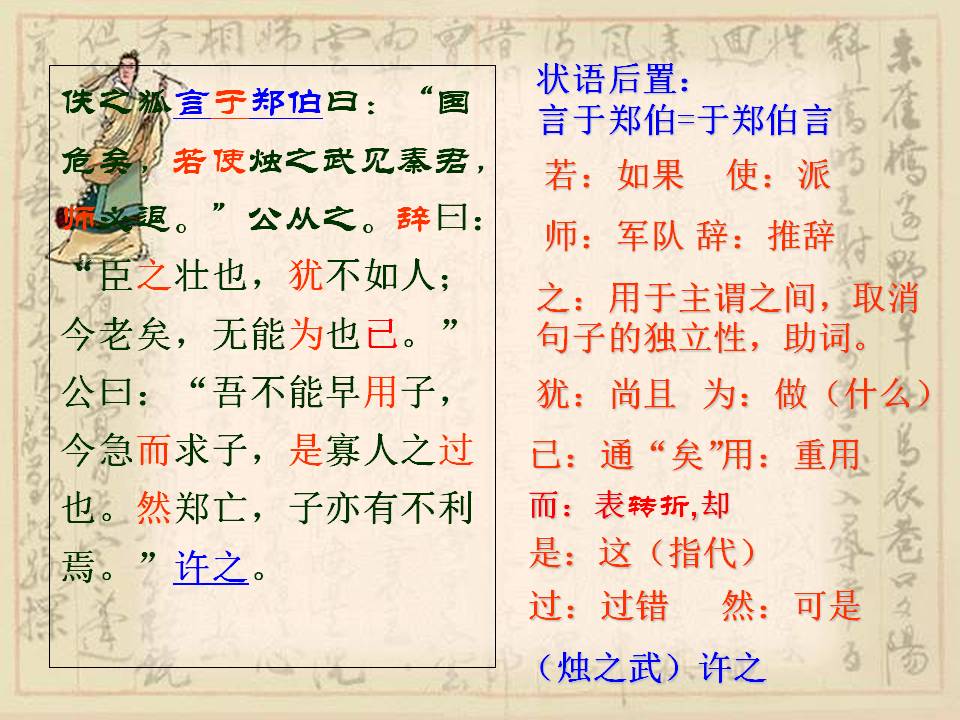 佚之狐言于郑伯曰：“国
危矣，若使烛之武见秦君，
师必退。”公从之。辞曰：
“臣之壮也，犹不如人；
今老矣，无能为也已。”
公曰：“吾不能早用子，
今急而求子，是寡人之过
也。然郑亡，子亦有不利
焉。”许之。
状语后置：
言于郑伯=于郑伯言
若：如果 使：派
师：军队 辞：推辞
之：用于主谓之间，取消
句子的独立性，助词。
犹：尚且 为：做（什么）
已：通“矣”用：重用
而：表转折,却
是：这（指代）
过：过错 然：可是
（烛之武）许之